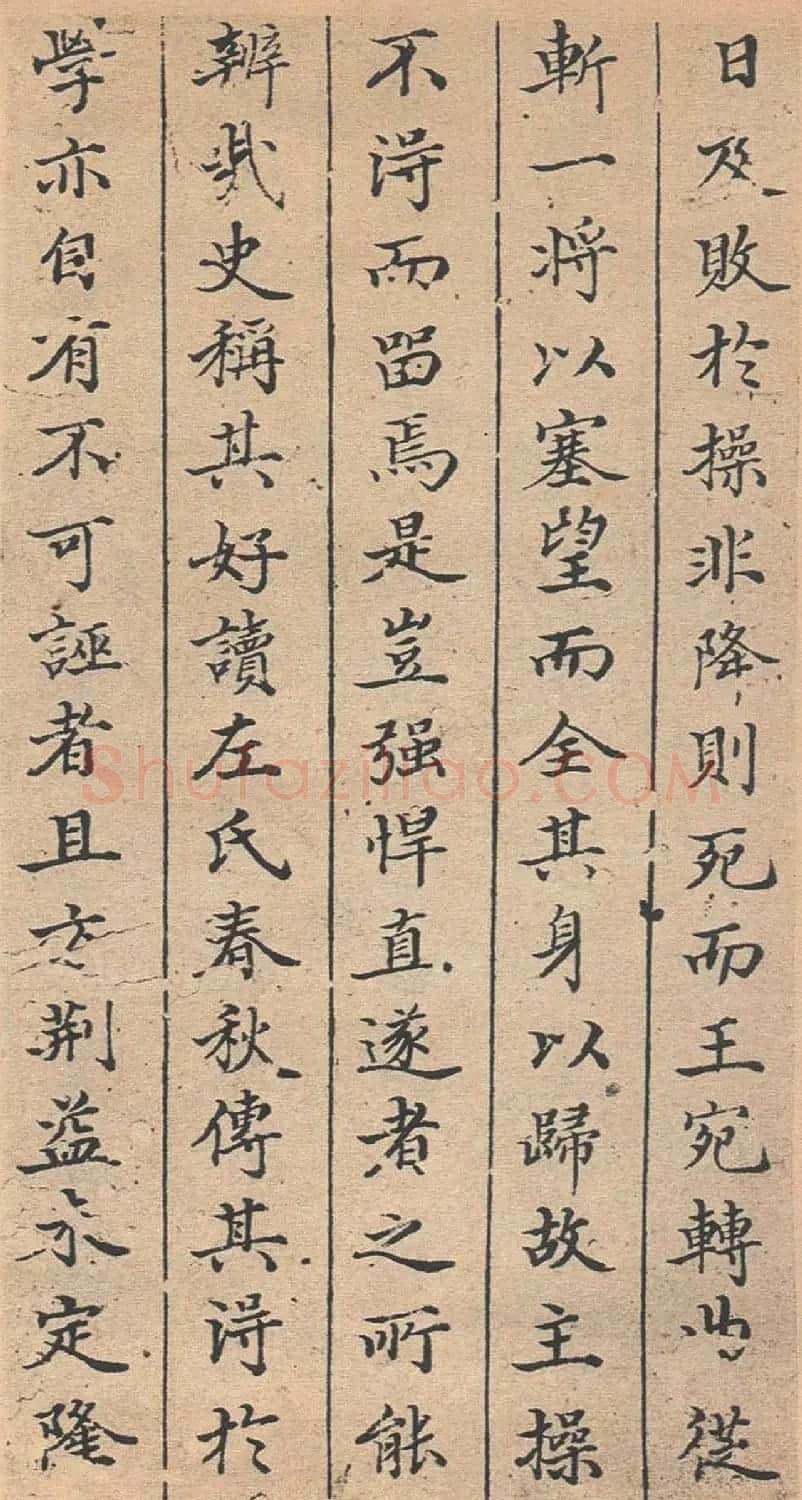 日及敗於操非降則死而王宛轉曲從
斬一將以塞望而全其身以歸故主操
不得而留焉是豈强悍直遂者之所能
辨哉史稱其好讀左氏春秋傳其得於
學亦自有不可誣者且方荆益未定隆
Shufaziliao.COM